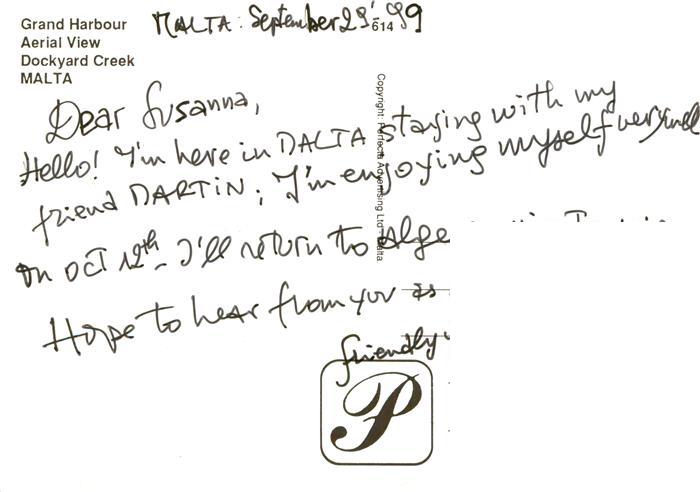 Grand Harbour
Aerial View
Dockyard Creek
MALTA
MALTA: September 29' 99
614
Copyright: Perfecta Advertising Ltd - Malta
Dear Susanna,
Hello! I'm here in MALTA staying with my
friend MARTIN; I'm enjoying myself very well
On OCT 12th - I'll return to Alge
Hope to hear from you as
friendly
P